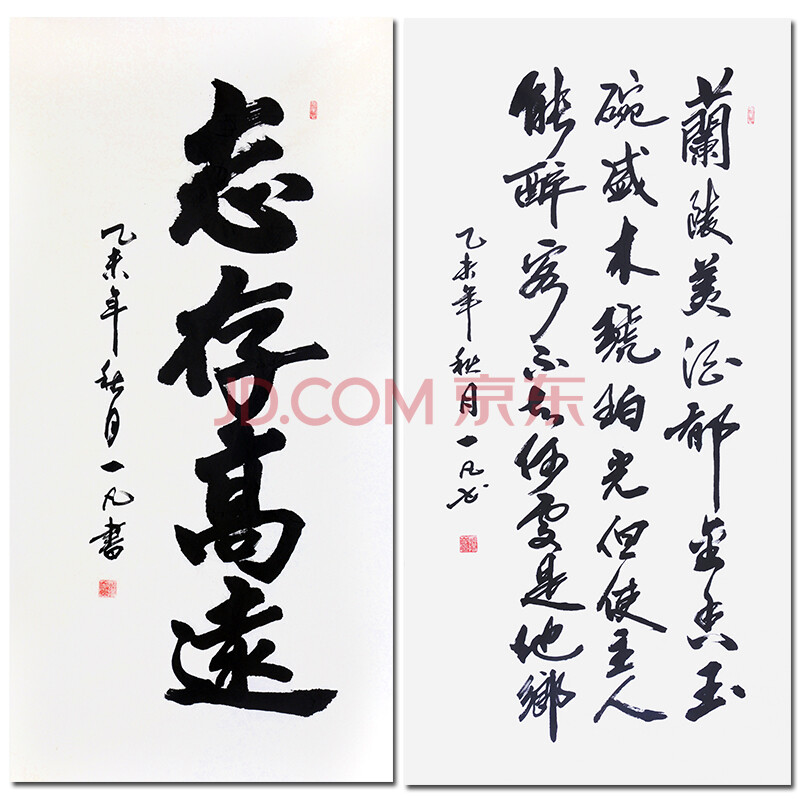 志存高遠
乙未年秋月一凡書
蘭陵美酒郁金香玉
碗盛来琥珀光但使主人
能醉客不知何處是他鄉
乙未年秋月一凡书
JD.COM 京东